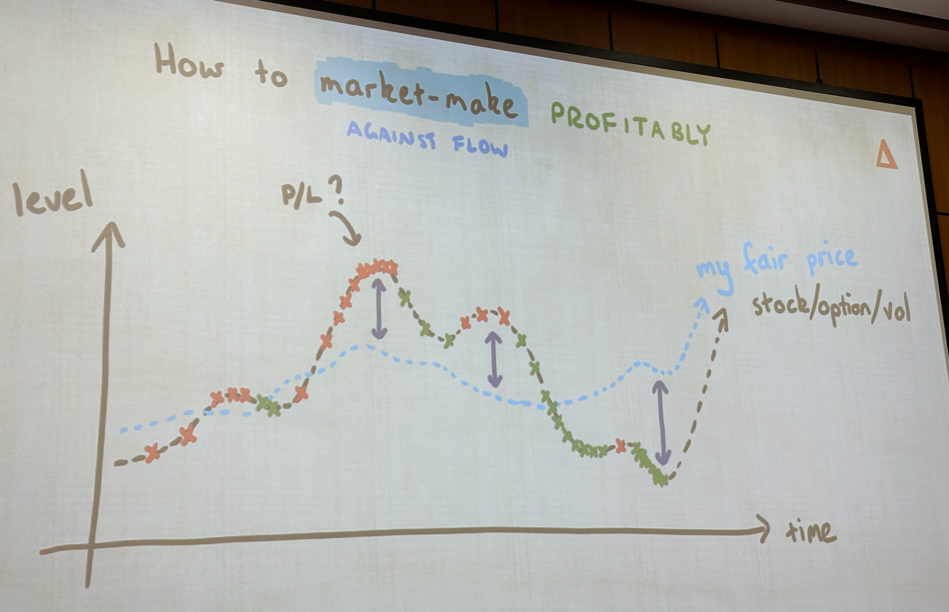 How to market-make PROFITABLY
AGAINST FLOW
level
P/L?
my fair price
stock/option/vol
time